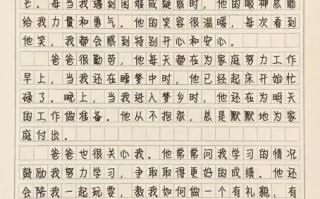 毛。每当我遇到困难或疑惑时，他的眼神总能
给我力量和勇气。他的笑容很温暖，每次看到
他笑，我都会感到特别开心和安心。
爸爸很勤劳，他每天都在为家庭努力工作
早上，当我还在睡梦中时，他已经起床开始忙
碌了。晚上，当我进入梦乡时，他还在为明天
的工作做准备。他从不抱怨，总是默默地为家
庭付出。
爸爸也很关心我。他常常问我学习的情况
鼓励我努力学习，争取取得更好的成绩。他还
会陪我一起玩耍，教我如何做一个有礼貌，有